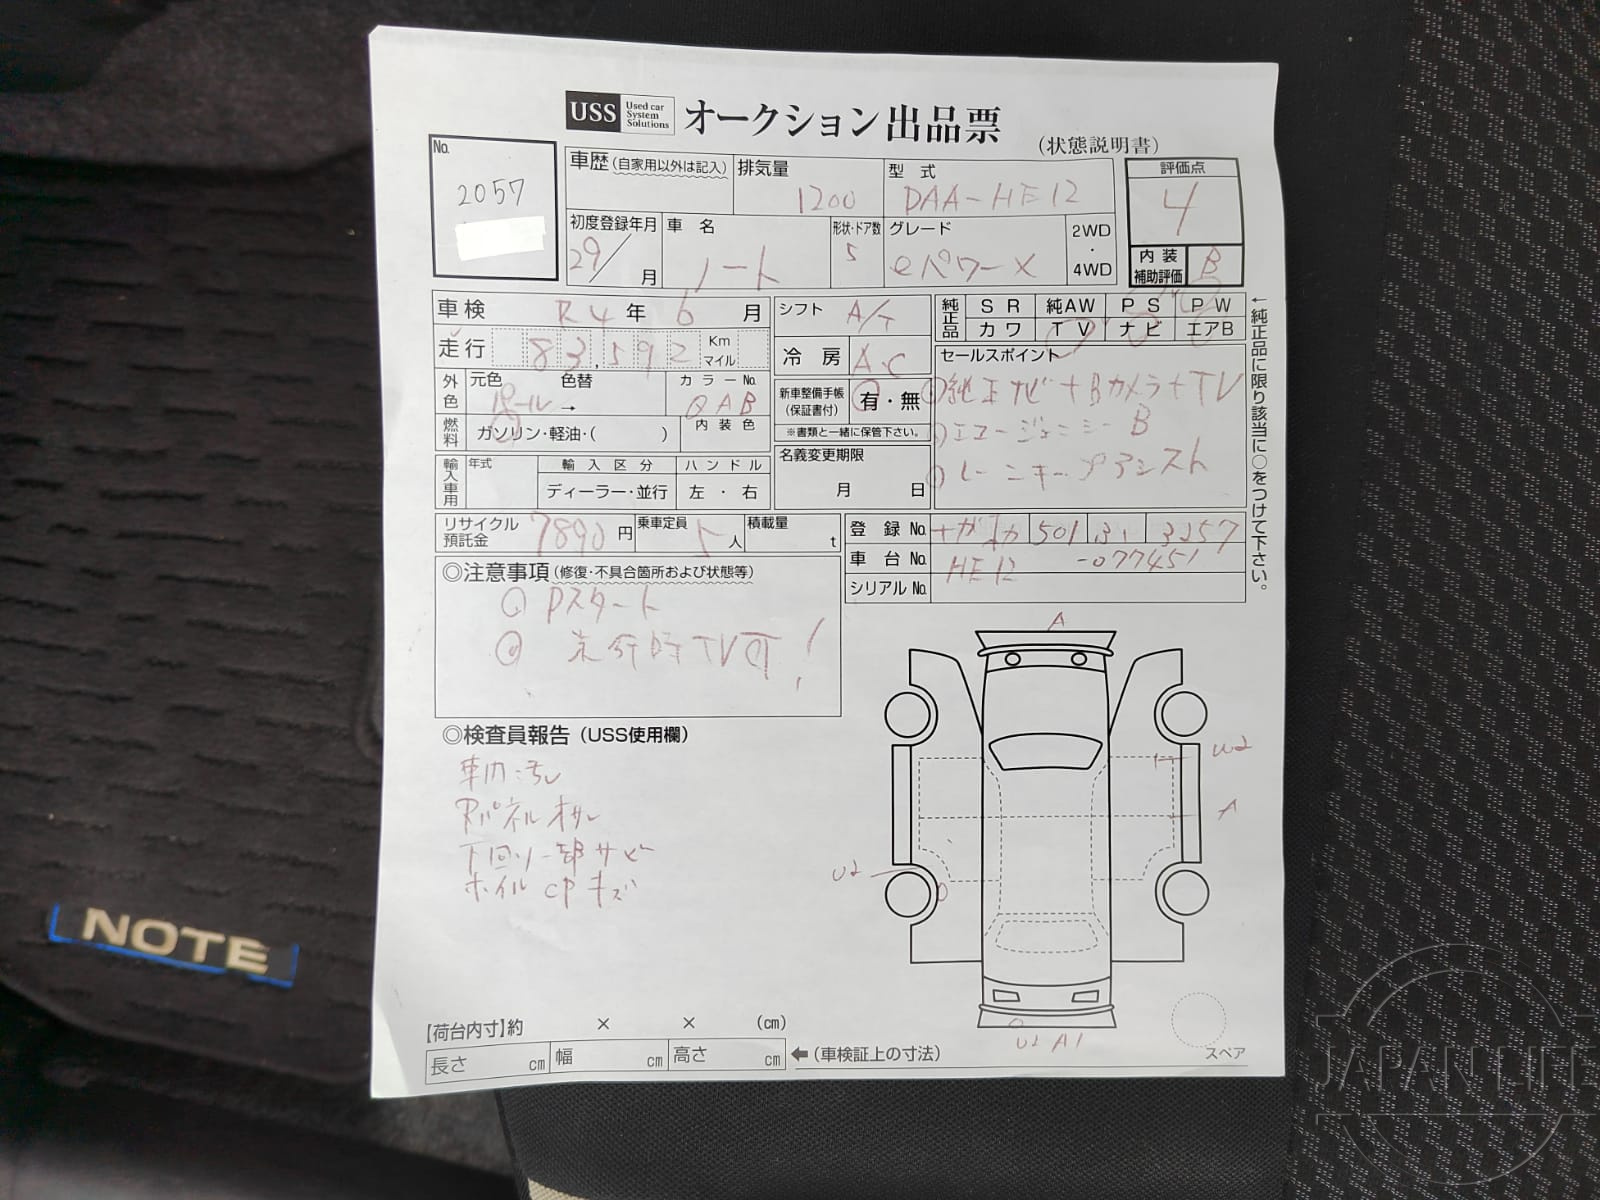 USS Used car System Solutions オークション出品票 (状態説明書)
No. 2057
車歴(自家用以外は記入) 排気量 1200 型式 DAA-HE12
初度登録年月 29/ 月 車名 ノート 形状・ドア数 5 グレード eパワーX 2WD・4WD
評価点 4
内装補助評価 B
車検 R4年 6月
シフト A/T
純正品 SR 純AW PS PW
カワ TV ナビ エアB
走行 83,592 Km マイル
冷房 A.C
セールスポイント
純正ナビ+Bカメラ+TV
エマージェンシーB
レーンキープアシスト
外色 元色 パール → 色替 カラーNo. QAB
新車整備手帳(保証書付) 有・無
※書類と一緒に保管下さい。
燃料 ガソリン・軽油・( ) 内装色
名義変更期限 月 日
輸入車用 年式 輸入区分 ハンドル
ディーラー・並行 左・右
←純正品に限り該当に○をつけて下さい。
リサイクル預託金 7890円 乗車定員 5人 積載量 t
登録No. ナガオカ 501 3257
車台No. HE12 -077451
シリアルNo.
◎注意事項(修復・不具合箇所および状態等)
Pスタート
走行時TV可!
◎検査員報告(USS使用欄)
車内汚れ
Rパネル押サレ
下回り一部サビ
ホイルCPキズ
A
U2
A
U2
U2 A1
スペア
【荷台内寸】約 × × (cm)
長さ cm 幅 cm 高さ cm ←(車検証上の寸法)
NOTE
JAPAN LIFE